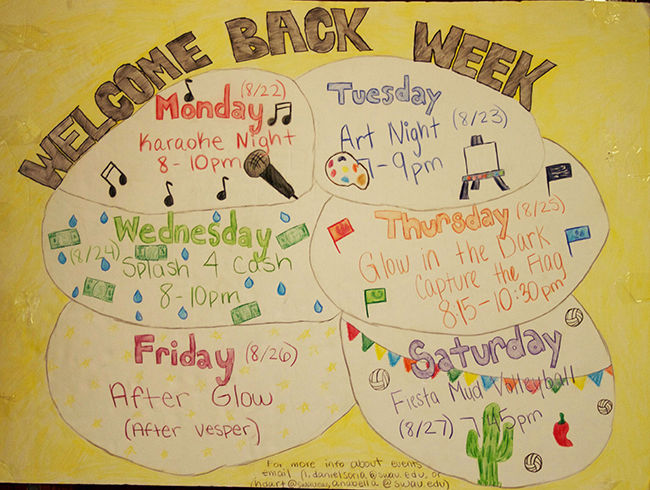 WELCOME BACK WEEK
Monday (8/22)
Karaoke Night
8-10pm
Tuesday
(8/23)
Art Night
7-9pm
Wednesday
(8/24) Splash 4 Cash
8-10pm
Thursday (8/25)
Glow in the Dark
Capture the Flag
8:15-10:30pm
Friday (8/26)
After Glow
(After Vesper)
Saturday
Fiesta Mud Volleyball
(8/27) 7:45pm
For more info about events
email
@swau.edu, or
anabella@swau.edu)